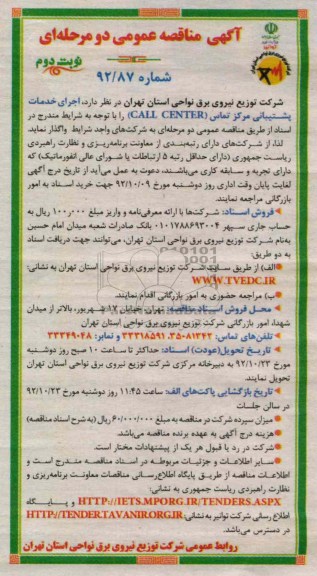 آگهی مناقصه عمومی دو مرحله‌ای
نوبت دوم
شماره ۹۲/۸۷
شرکت توزیع نیروی برق نواحی استان تهران در نظر دارد، اجرای خدمات
پشتیبانی مرکز تماس (CALL CENTER) را با توجه به شرایط مندرج در
اسناد از طریق مناقصه عمومی دو مرحله‌ای به شرکت‌های واجد شرایط واگذار نماید.
لذا، از شرکت‌های دارای رتبه‌بندی از معاونت برنامه‌ریزی و نظارت راهبردی
ریاست جمهوری (دارای حداقل رتبه ۵ ارتباطات یا شورای عالی انفورماتیک) که
دارای تجربه و سابقه کاری می‌باشند، دعوت به عمل می‌آید از تاریخ درج آگهی
لغایت پایان وقت اداری روز دوشنبه مورخ ۹۲/۱۰/۰۹ جهت خرید اسناد به امور
بازرگانی مراجعه نمایند.
فروش اسناد: شرکت‌ها با ارائه معرفی‌نامه و واریز مبلغ ۱۰۰٫۰۰۰ ریال به
حساب جاری سپهر ۰۱۰۱۷۸۸۶۹۳۰۰۴ بانک صادرات شعبه میدان امام حسین
به‌نام شرکت توزیع نیروی برق نواحی استان تهران، می‌توانند جهت دریافت اسناد
به دو طریق:
الف) از طریق سایت شرکت توزیع نیروی برق نواحی استان تهران به نشانی:
WWW.TVEDC.IR
ب) مراجعه حضوری به امور بازرگانی اقدام نمایند.
محل فروش اسناد مناقصه: تهران، خیابان ۱۷ شهریور، بالاتر از میدان
شهدا، امور بازرگانی شرکت توزیع نیروی برق نواحی استان تهران
تلفن‌های تماس: ۳۵۰۸۱۳۴۲، ۳۳۳۱۸۵۹۱ و نمابر: ۳۳۳۴۹۰۴۸
تاریخ تحویل (عودت) اسناد: حداکثر تا ساعت ۱۰ صبح روز دوشنبه
مورخ ۹۲/۱۰/۲۳ به دبیرخانه مرکزی شرکت توزیع نیروی برق نواحی استان تهران
تحویل نمایند.
تاریخ بازگشایی پاکت‌های الف: ساعت ۱۱:۴۵ روز دوشنبه مورخ ۹۲/۱۰/۲۳
در سالن جلسات
میزان سپرده شرکت در مناقصه به مبلغ ۶۰/۰۰۰/۰۰۰ ریال (به شرح اسناد مناقصه)
هزینه درج آگهی به عهده برنده مناقصه می‌باشد.
شرکت در رد یا قبول هر یک از پیشنهادات مختار است.
سایر اطلاعات و جزئیات مربوطه در اسناد مناقصه مندرج است و
اطلاعات مناقصه از طریق پایگاه اطلاع‌رسانی مناقصات معاونت برنامه‌ریزی و
نظارت راهبردی ریاست جمهوری به نشانی:
HTTP://IETS.MPORG.IR/TENDERS.ASPX و پایگاه
اطلاع رسانی شرکت توانیر به نشانی: HTTP://TENDER.TAVANIR.ORG.IR
در دسترس می‌باشد.
روابط عمومی شرکت توزیع نیروی برق نواحی استان تهران